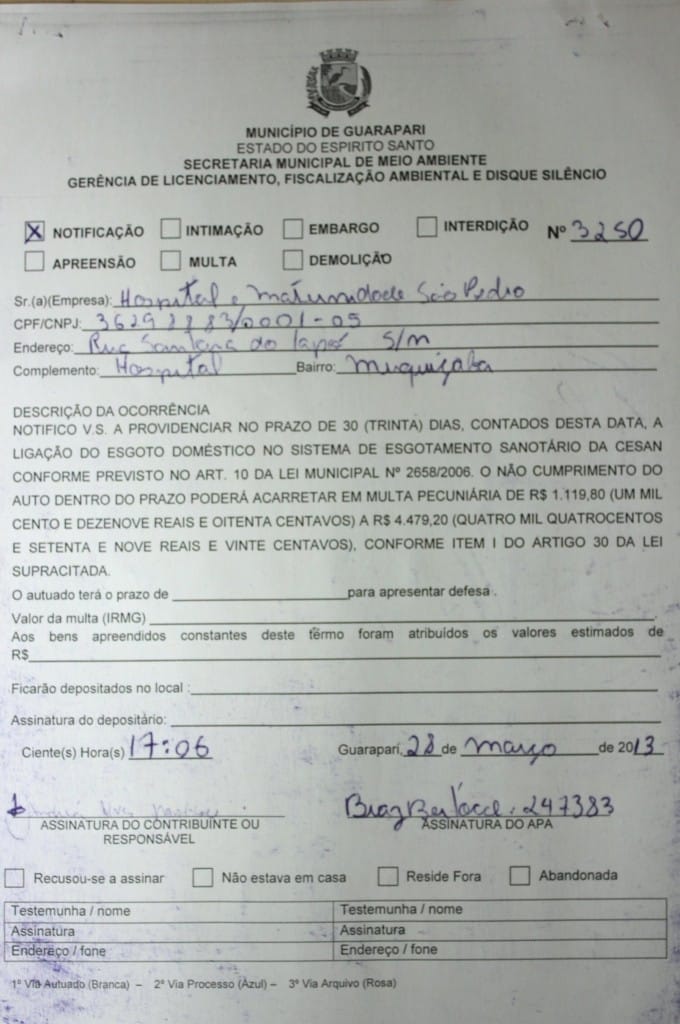 MUNICÍPIO DE GUARAPARI
ESTADO DO ESPIRITO SANTO
SECRETARIA MUNICIPAL DE MEIO AMBIENTE
GERÊNCIA DE LICENCIAMENTO, FISCALIZAÇÃO AMBIENTAL E DISQUE SILÊNCIO
X NOTIFICAÇÃO INTIMAÇÃO EMBARGO INTERDIÇÃO Nº 3250
APREENSÃO MULTA DEMOLIÇÃO
Sr.(a)(Empresa): Hospital e Maternidade São Pedro
CPF/CNPJ: 36298883/0001-05
Endereço: Rua Santana do S/N
Complemento: Hospital Bairro: Muquiçaba
DESCRIÇÃO DA OCORRÊNCIA
NOTIFICO V.S. A PROVIDENCIAR NO PRAZO DE 30 (TRINTA) DIAS, CONTADOS DESTA DATA, A
LIGAÇÃO DO ESGOTO DOMÉSTICO NO SISTEMA DE ESGOTAMENTO SANOTÁRIO DA CESAN
CONFORME PREVISTO NO ART. 10 DA LEI MUNICIPAL Nº 2658/2006. O NÃO CUMPRIMENTO DO
AUTO DENTRO DO PRAZO PODERÁ ACARRETAR EM MULTA PECUNIÁRIA DE R$ 1.119,80 (UM MIL
CENTO E DEZENOVE REAIS E OITENTA CENTAVOS) A R$ 4.479,20 (QUATRO MIL QUATROCENTOS
E SETENTA E NOVE REAIS E VINTE CENTAVOS), CONFORME ITEM I DO ARTIGO 30 DA LEI
SUPRACITADA.
O autuado terá o prazo de para apresentar defesa .
Valor da multa (IRMG)
Aos bens apreendidos constantes deste termo foram atribuídos os valores estimados de
R$
Ficarão depositados no local :
Assinatura do depositário:
Ciente(s) Hora(s) 17:06 Guarapari, 28 de março de 2013
Braz 247383
ASSINATURA DO CONTRIBUINTE OU ASSINATURA DO APA
RESPONSÁVEL
Recusou-se a assinar Não estava em casa Reside Fora Abandonada
Testemunha / nome Testemunha / nome
Assinatura Assinatura
Endereço / fone Endereço / fone
1º Via Autuado (Branca) – 2º Via Processo (Azul) – 3º Via Arquivo (Rosa)